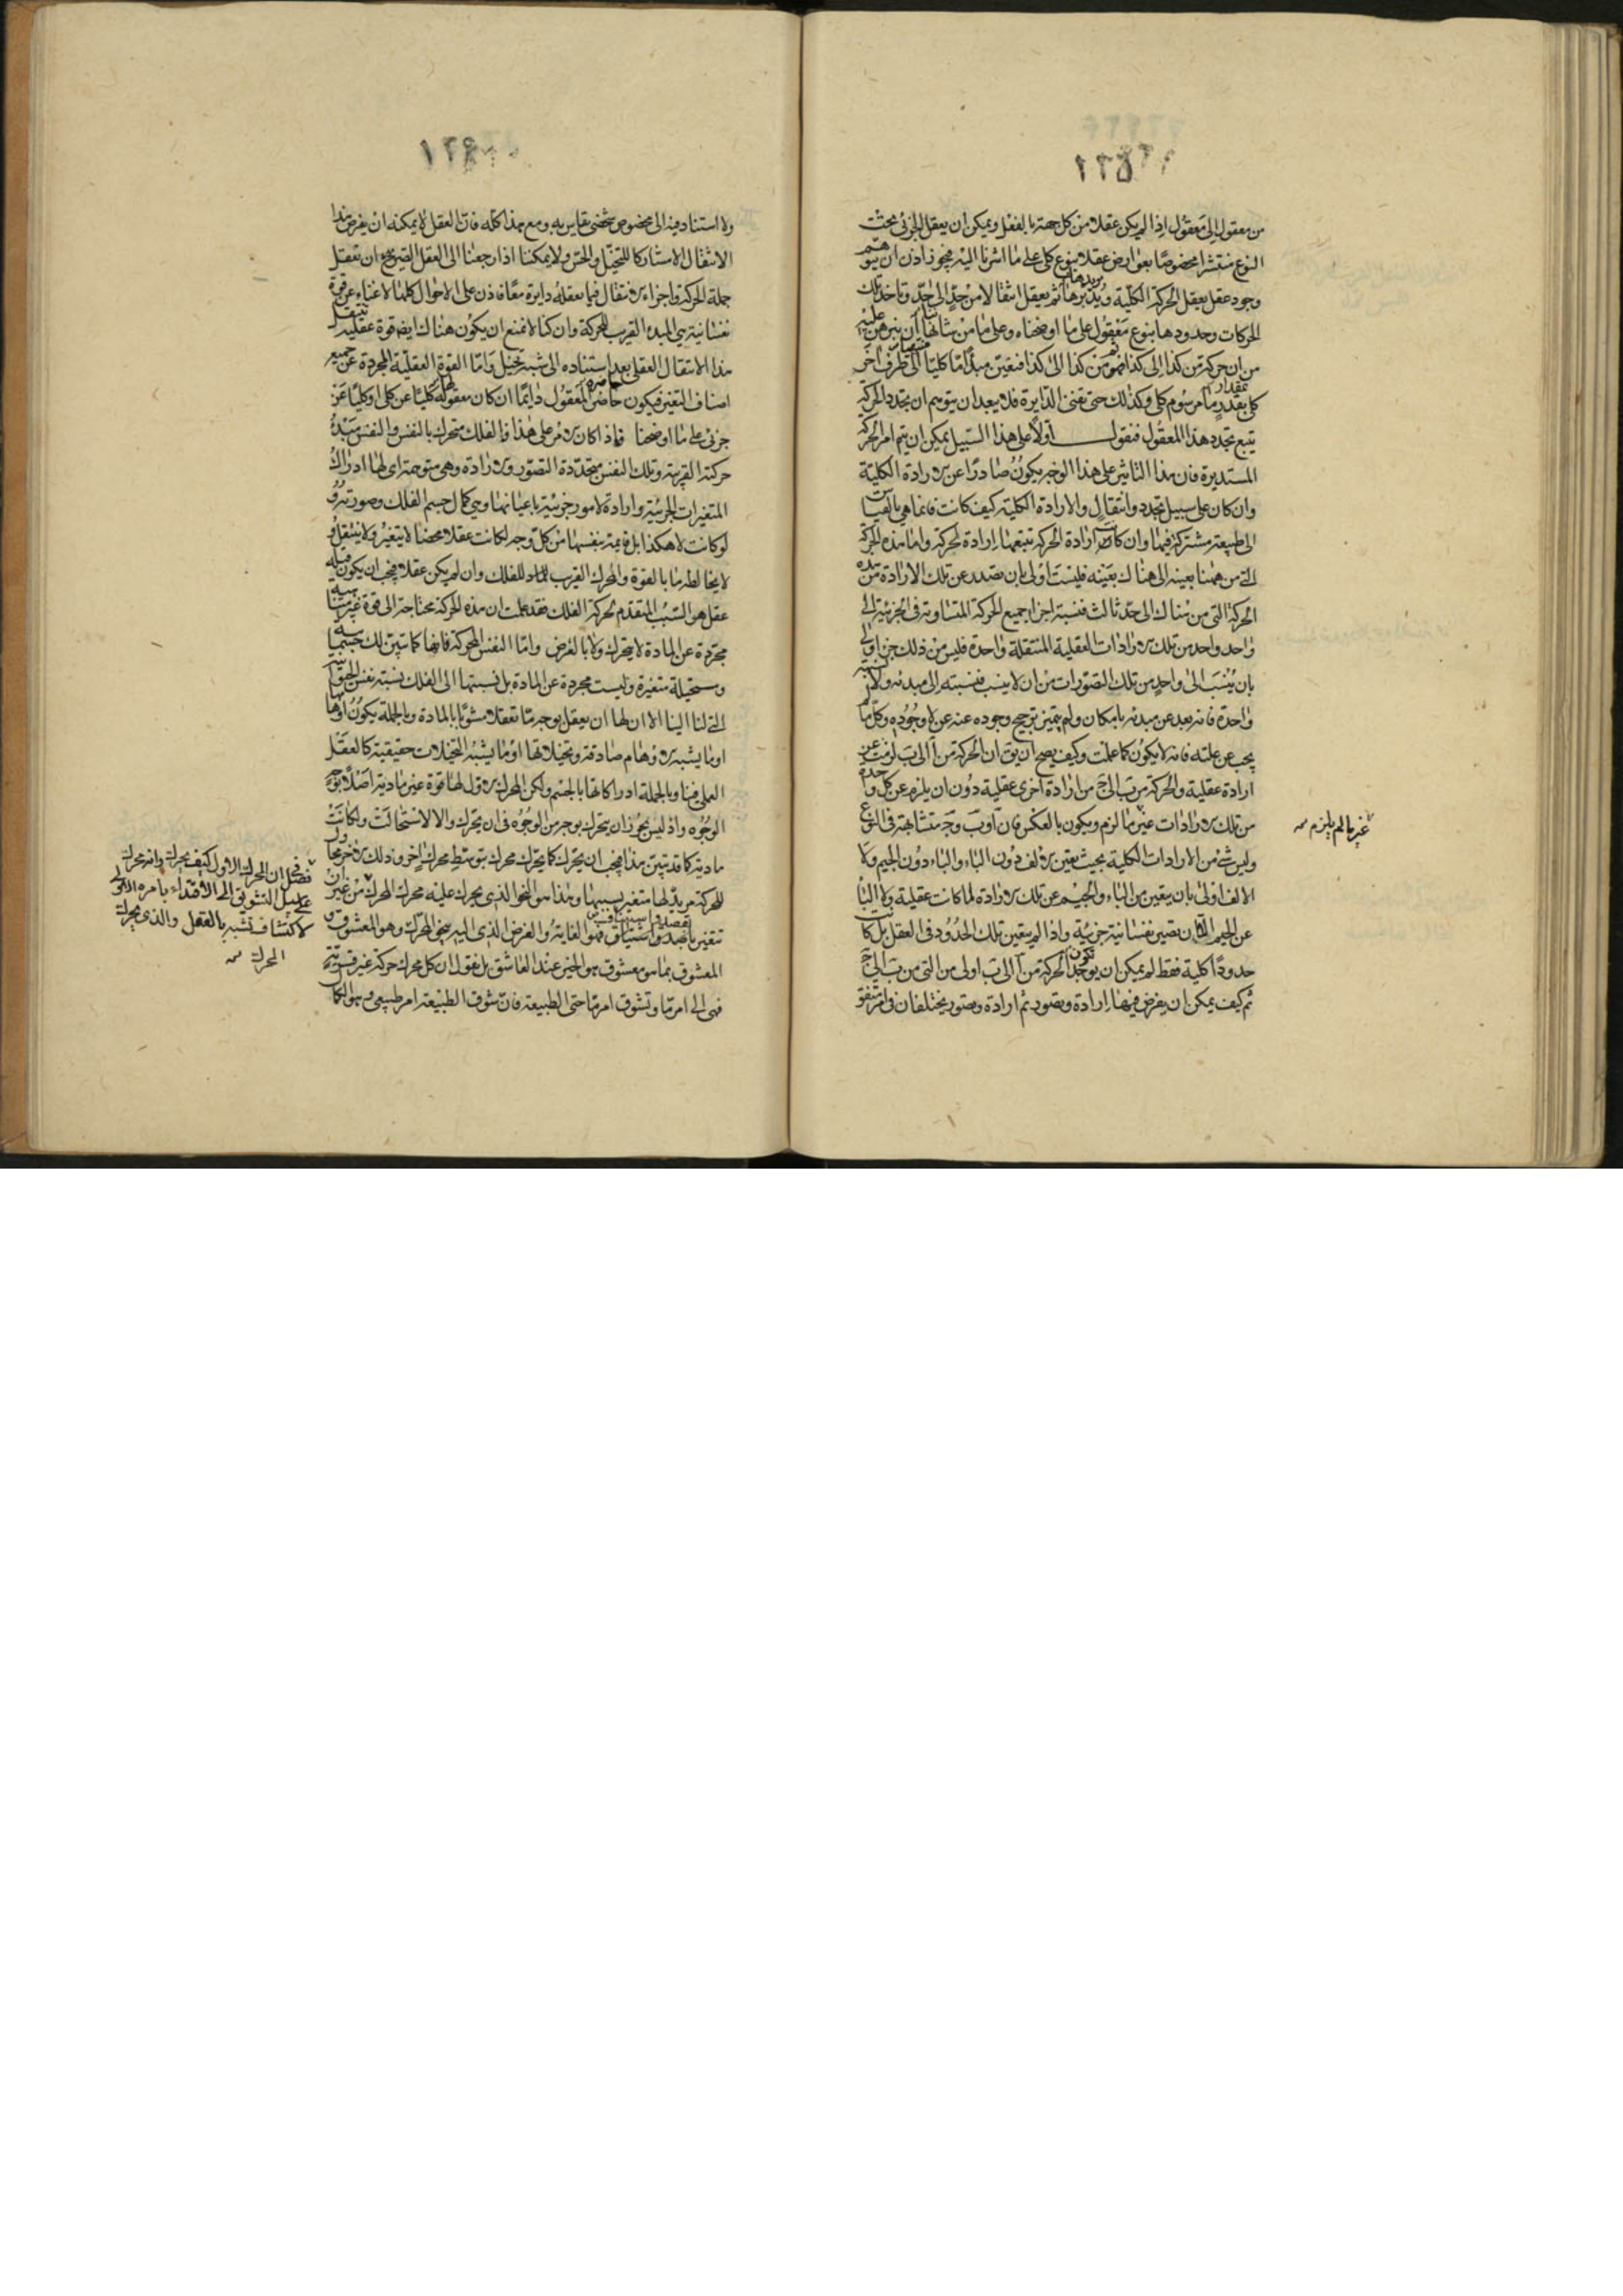 ١٢٥
من معقول الى معقول اذا لم يكن عقلا من كل جهة بالفعل ويمكن ان يعقل الجزئى تحت
النوع منتشرا مخصوصا بعوارض عقلا بنوع كلى على ما اشرنا اليه فيجوز اذن ان نتوهم
وجود عقل يعقل الحركة الكلية ويريدها ثم يعقل انتقالا من حد الى حد وتاخذ تلك
الحركات وحدودها بنوع معقول على ما اوضحناه وعلى ما من شاننا ان نبرهن عليه
من ان حركة من كذا الى كذا ثم من كذا الى كذا فنعين مبدأ ما كليا الى طرف اخر
كلى بمقدار ما مرسوم كلى وكذلك حتى تفنى الدايرة فلا يبعد ان يتوهم ان تجدد الحركة
يتبع تجدد هذا المعقول فنقول اولا على هذا السبيل يمكن ان يتم امر الحركة
المستديرة فان هذا التاثير على هذا الوجه يكون صادرا عن الارادة الكلية
وان كان على سبيل تجدد وانتقال والارادة الكلية كيف كانت فانما هى بالقياس
الى طبيعة مشتركة فيها وان كانت ارادة الحركة تتبعها ارادة لحركة واما هذه الحركة
التى من ههنا بعينه الى هناك بعينه فليست اولى بان تصدر عن تلك الارادة من هذه
الحركة التى من هناك الى حد ثالث فنسبة اجزا جميع الحركة المتساوية فى الجزئية الى
واحد واحد من تلك الارادات العقلية المنتقلة واحدة فليس من ذلك جزء اولى
بان ينسب الى واحد من تلك التصورات من ان لا ينسب فنسبته الى مبدئه ولا نسبته
واحدة فانه بعد عن مبدئه بامكان ولم يتميز ترجيح وجوده عنه عن لا وجوده وكل ما لم
يجب عن علته فانه لا يكون كما علمت وكيف يصح ان يق ان الحركة من آ الى ب لزمت عن
ارادة عقلية والحركة من ب الى ج من ارادة اخرى عقلية دون ان يلزم عن كل واحدة
من تلك الارادات غير ما لزم ويكون بالعكس فان ا و ب و ج متشابهة فى النوع
وليس شئ من الارادات الكلية بحيث يعين الالف دون الباء والباء دون الجيم ولا
الالف اولى بان يتعين من الباء والجيم عن تلك الارادة لما كانت عقلية ولا البا
عن الجيم الا ان تصير نفسانية جزئية واذا لم يتعين تلك الحدود فى العقل بل كانت
حدودا كلية فقط لم يمكن ان توجد الحركة من آ الى ب اولى من التى من ب الى ج
ثم كيف يمكن ان يفرض فيها ارادة وتصور ثم ارادة وتصور يختلفان فى امر متفق
غير ما لم يلزم
١٢٦
ولا استناد فيه الى مخصوص شخصى يقاس به ومع هذا كله فان العقل لا يمكنه ان يفرض هذا
الانتقال الا مشاركا للتخيل والحس ولا يمكننا اذا رجعنا الى العقل الصريح ان نعقل
جملة الحركة واجزاء الانتقال فيما يعقله دايرة معا فاذن على الاحوال كلها لا غناء عن قوة
نفسانية هى المبدء القريب للحركة وان كنا لا نمنع ان يكون هناك ايضا قوة عقلية تنتقل
هذا الانتقال العقلى بعد استناده الى شبه تخيل واما القوة العقلية المجردة عن جميع
اصناف التغير فيكون حاضرة المعقول دايما ان كان معقولها كليا عن كلى او كليا عن
جزئى على ما اوضحنا فاذا كان الامر على هذا فالفلك متحرك بالنفس والنفس مبدء
حركته القريبة وتلك النفس متجددة التصور والارادة وهى متوهمة اى لها ادراك
المتغيرات الجزئية وارادة لامور جزئية باعيانها وهى كمال جسم الفلك وصورته و
لو كانت لا هكذا بل قايمة بنفسها من كل وجه لكانت عقلا محضا لا يتغير ولا ينتقل و
لا يخالطه ما بالقوة والمحرك القريب للفلك وان لم يكن عقلا فيجب ان يكون قبله
عقل هو السبب المتقدم لحركة الفلك فقد علمت ان هذه الحركة محتاجة الى قوة غير متناهية
مجردة عن المادة لا يتحرك ولا بالعرض واما النفس المحركة فانها كما تبين لك جسمانية
ومستحيلة متغيرة وليست مجردة عن المادة بل نسبتها الى الفلك نسبة نفس الحيوانية
التى لنا الينا الا ان لها ان يعقل بوجه ما تعقلا مشوبا بالمادة وبالجملة يكون اوهامها
او ما يشبه الاوهام صادقة وتخيلاتها او ما يشبه التخيلات حقيقية كالعقل
العملى فينا وبالجملة ادراكاتها بالجسم ولكن المحرك الاول لها قوة غير مادية اصلا بوجه من
الوجوه واذ ليس يجوز ان يتحرك بوجه من الوجوه فى ان تحرك والا لاستحالت ولكانت
مادية كما قد تبين هذا فيجب ان يحرك كما يحرك محرك بتوسط محرك اخر وذلك الاخر محاول
للحركة مريد لها متغير بسببها وهذا هو النحو الذى يحرك عليه محرك المحرك من غير ان
تتغير بقصد واشتياق فهو الغاية والغرض الذى اليه ينحو المحرك وهو المعشوق و
المعشوق بما هو معشوق هو الخير عند العاشق بل نقول ان كل محرك حركة غير قسرية
فهى الى امر ما وتشوق امر ما حتى الطبيعة فان شوق الطبيعة امر طبيعى وهو الكمال
فصل فى ان المحرك الاول كيف يحرك وانه يحرك
على سبيل التشويق الى الاقتداء بامره الاولى
لاكتساب تشبه بالعقل والذى يحرك
المحرك